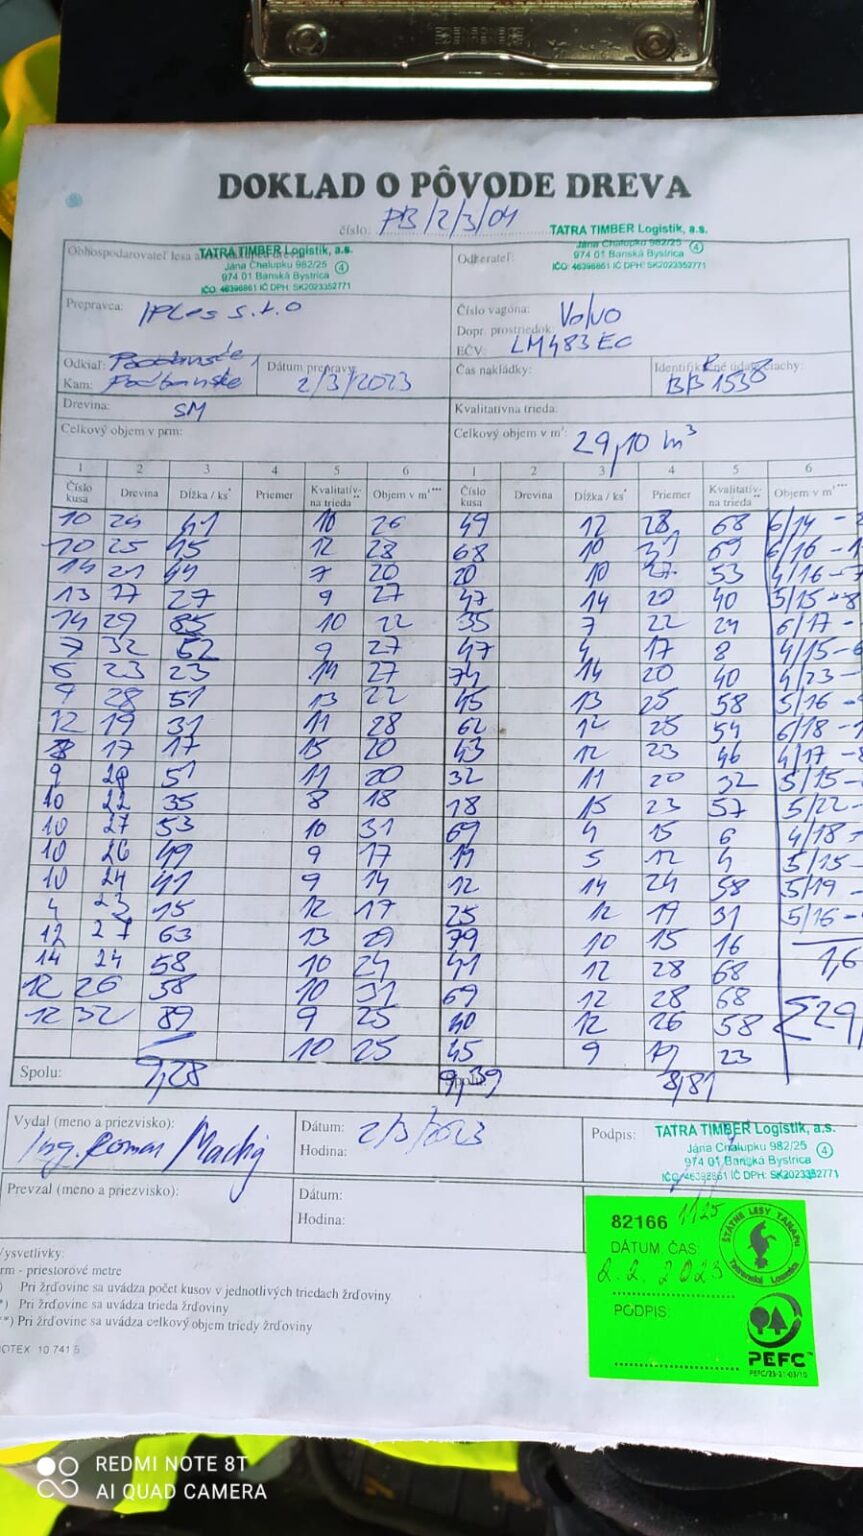 DOKLAD O PÔVODE DREVA
číslo: PB/2/3/04
Obhospodarovateľ lesa
TATRA TIMBER Logistik, a.s.
Jána Chalupku 982/25 4
974 01 Banská Bystrica
IČO: 46398861 IČ DPH: SK2023352771
Odberateľ:
TATRA TIMBER Logistik, a.s.
Jána Chalupku 982/25 4
974 01 Banská Bystrica
IČO: 46398861 IČ DPH: SK2023352771
Prepravca: IPLes s.r.o
Číslo vagóna: Volvo
Dopr. prostriedok:
EČV: LM483EC
Odkiaľ: Podbanske
Kam: Podbanske
Dátum prepravy: 2/3/2023
Čas nakládky:
BB 1538
Drevina: SM
Kvalitatívna trieda:
Celkový objem v prm:
Celkový objem v m³: 29,10 m³
1 2 3 4 5 6 1 2 3 4 5 6
Číslo kusa Drevina Dĺžka / ks* Priemer Kvalitatív-na trieda** Objem v m³*** Číslo kusa Drevina Dĺžka / ks* Priemer Kvalitatív-na trieda** Objem v m³***
10 24 41 10 26 49 12 28 68 6/14
10 25 45 12 28 68 10 31 69 6/16
14 21 44 7 20 20 10 27 53 4/16
13 17 27 9 27 47 14 20 40 5/15
14 29 85 10 22 35 7 22 24 6/17
7 32 52 9 27 47 4 17 8 4/15
6 23 23 14 27 74 14 20 40 4/23
9 28 51 13 22 45 13 25 58 5/16
12 19 31 11 28 62 12 25 54 6/18
8 17 17 15 20 43 12 23 46 4/17
9 28 51 11 20 32 11 20 32 5/15
10 22 35 8 18 18 15 23 57 5/22
10 27 53 10 31 69 4 15 6 4/18
10 26 49 9 17 19 5 12 4 5/15
10 24 41 9 14 12 14 24 58 5/19
4 23 15 12 17 25 12 19 31 5/16
12 27 63 13 29 79 10 15 16
14 24 58 10 24 41 12 28 68 1,6
12 26 58 10 31 69 12 28 68
12 32 89 9 25 40 12 26 58 Σ29,
10 25 45 9 19 23
Spolu: 9,28 9,39 8,81
Vydal (meno a priezvisko):
Ing. Roman Machy
Dátum: 2/3/2023
Hodina:
Podpis:
TATRA TIMBER Logistik, a.s.
Jána Chalupku 982/25 4
974 01 Banská Bystrica
IČO: 46398861 IČ DPH: SK2023352771
Prevzal (meno a priezvisko):
Dátum:
Hodina:
82166 1125
DÁTUM, ČAS:
2.2.2023
PODPIS:
ŠTÁTNE LESY TANAPu
Tatranská Lomnica
PEFC
PEFC/23-21-03/10
Vysvetlivky:
prm - priestorové metre
*) Pri žrďovine sa uvádza počet kusov v jednotlivých triedach žrďoviny
**) Pri žrďovine sa uvádza trieda žrďoviny
***) Pri žrďovine sa uvádza celkový objem triedy žrďoviny
OTEX 10 741 5
REDMI NOTE 8T
AI QUAD CAMERA